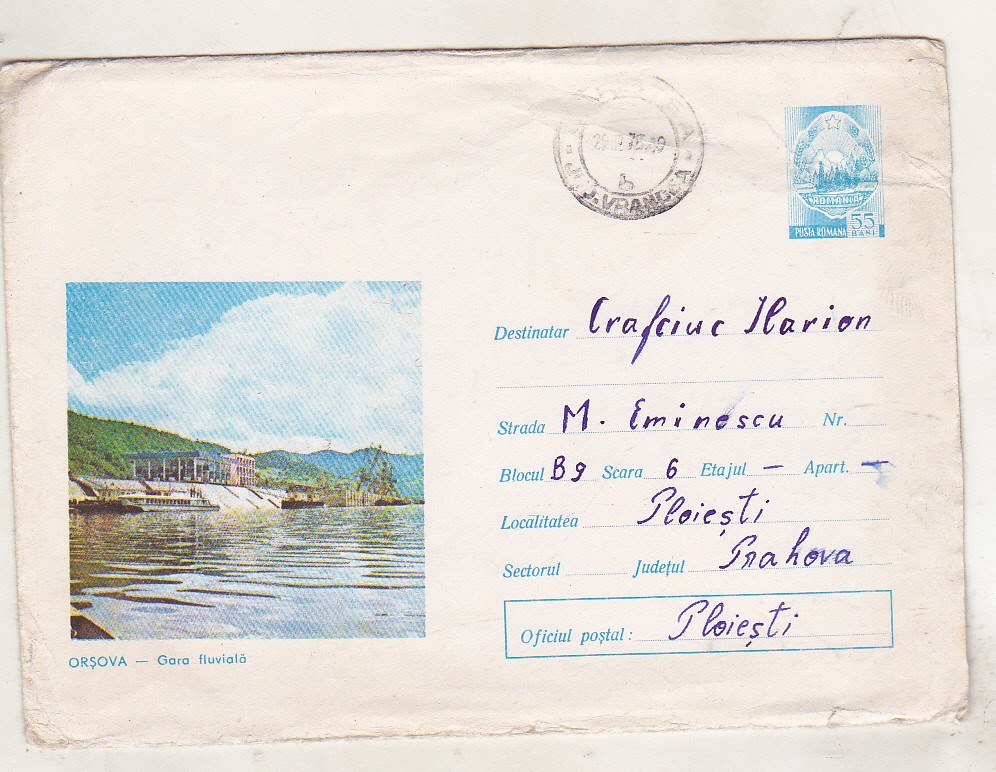 JUD. VRANCEA
b
ROMANIA
POSTA ROMANA 55 BANI
Destinatar Crafciuc Ilarion
Strada M. Eminescu Nr.
Blocul B9 Scara 6 Etajul — Apart. —
Localitatea Ploiești
Sectorul Județul Prahova
Oficiul poștal: Ploiești
ORȘOVA — Gara fluvială